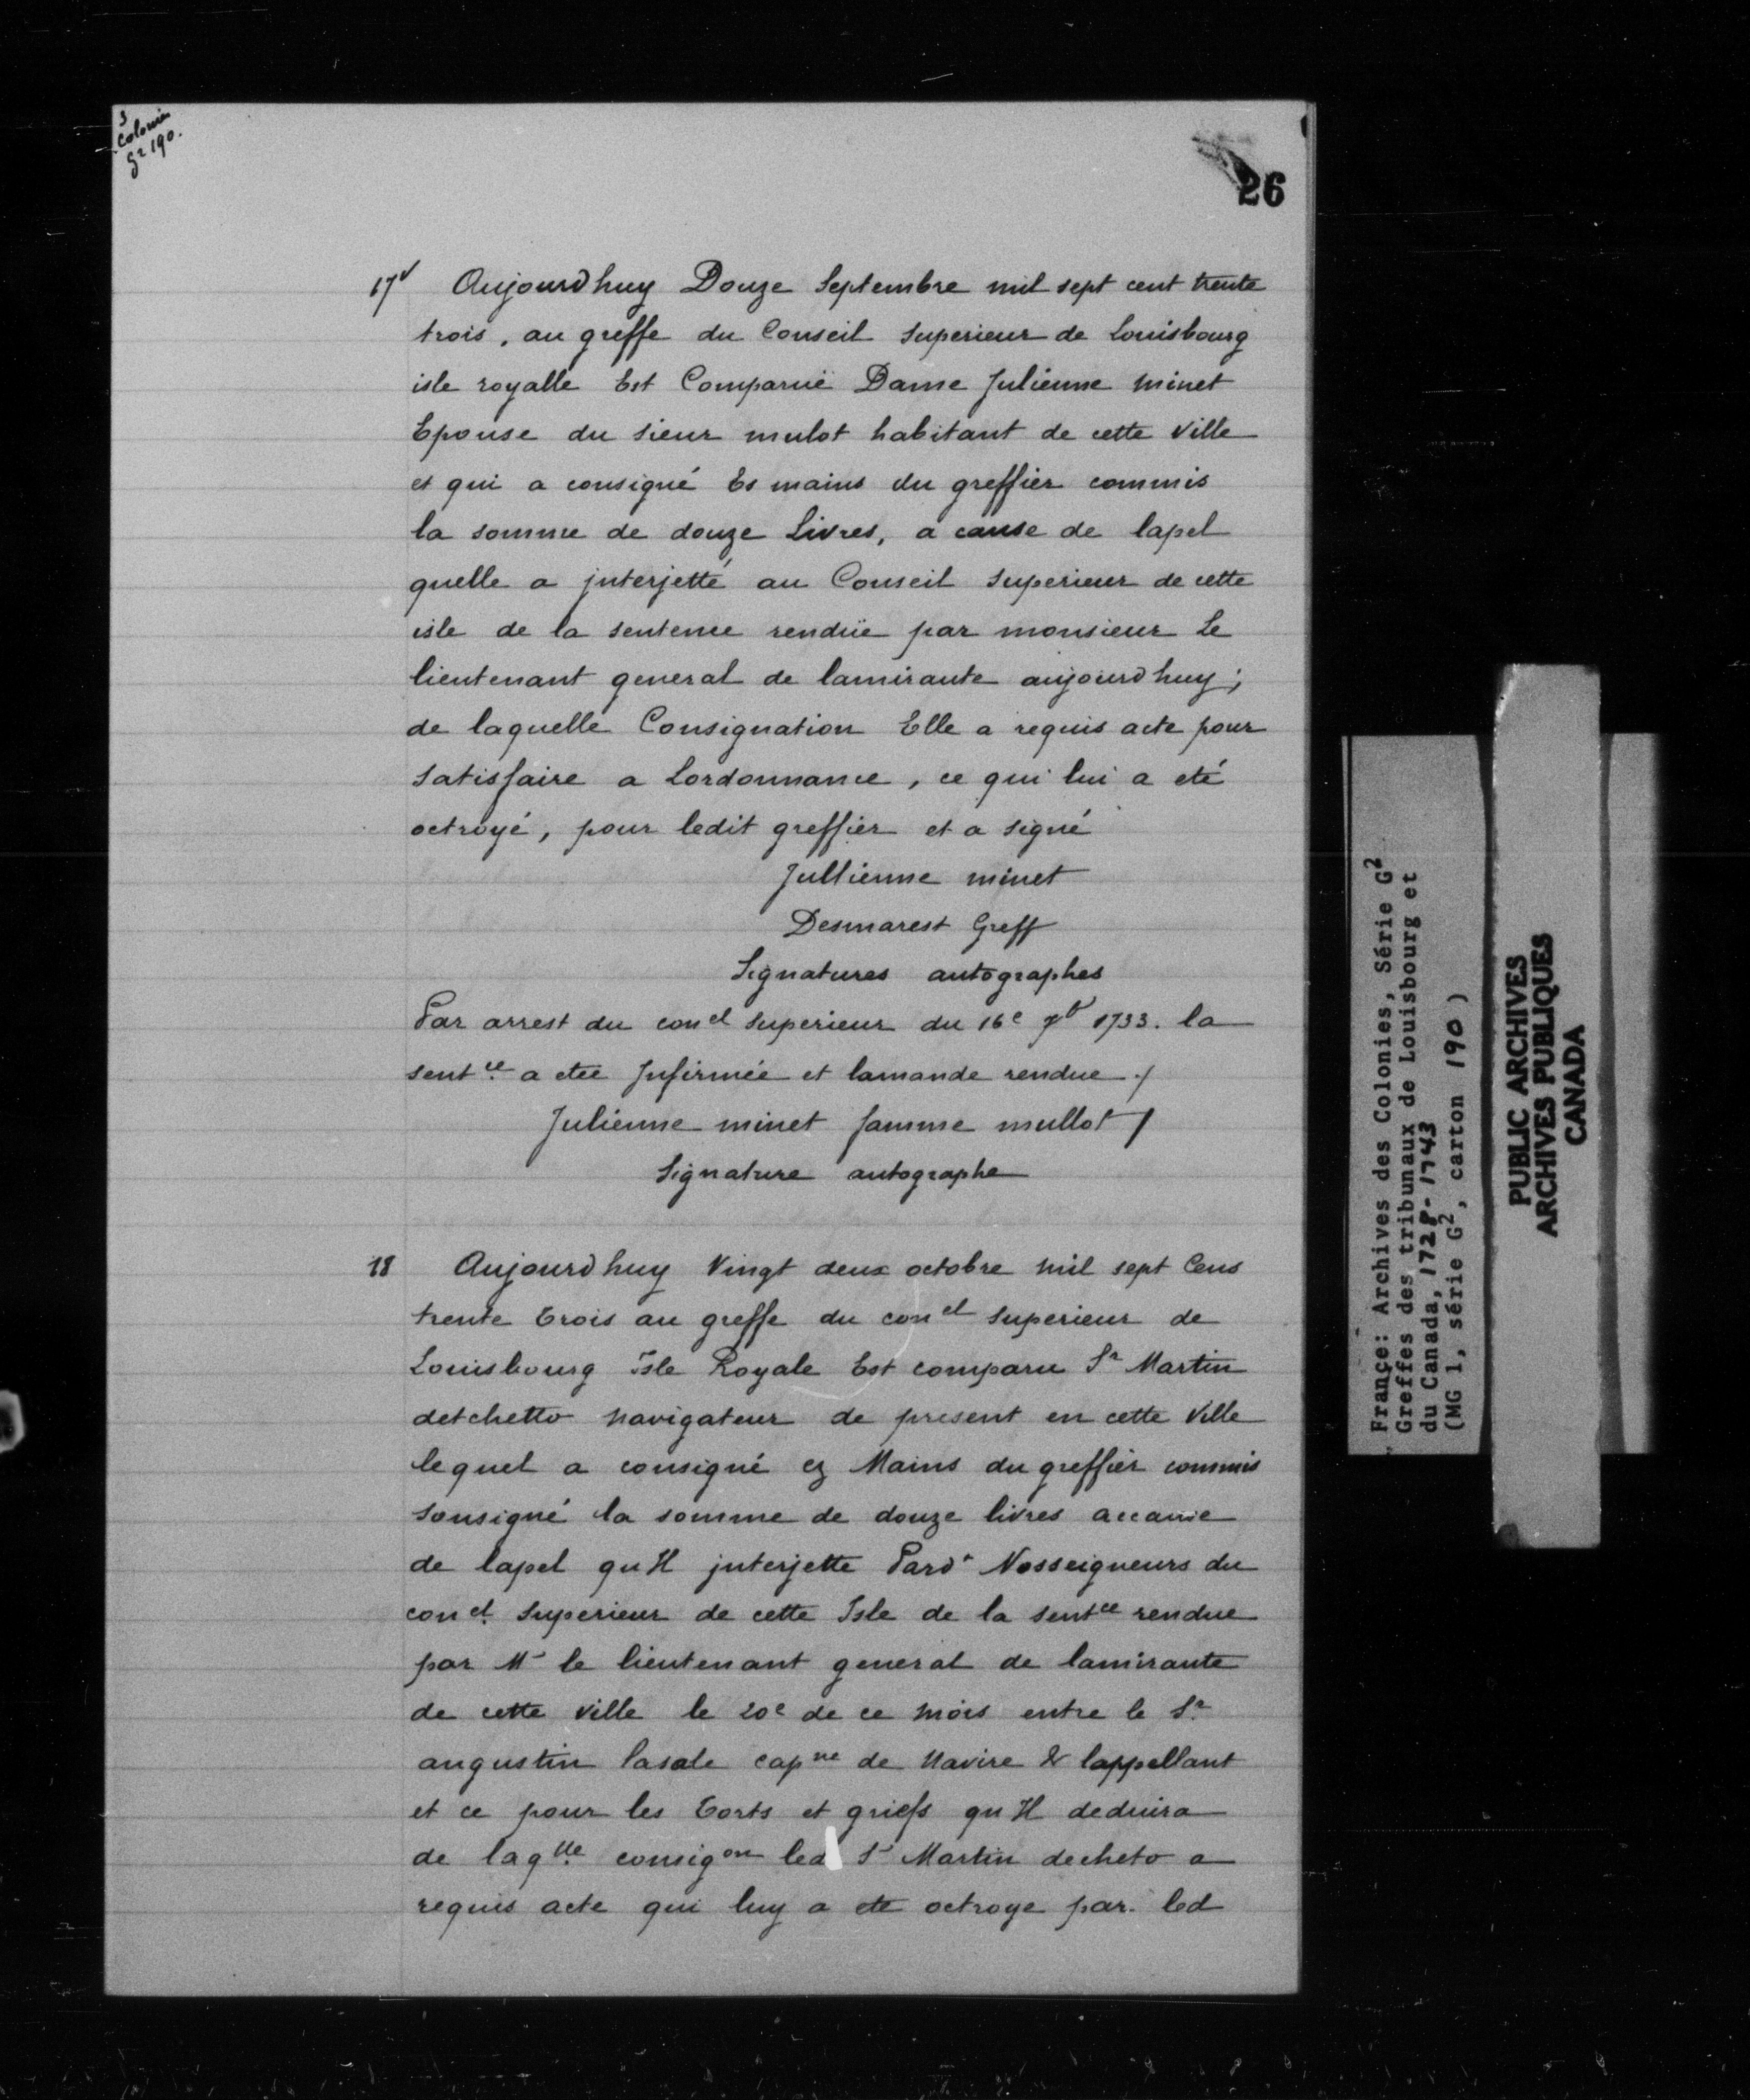 3
Colonies
G² 190.
26
17ᵛ Aujourdhuy Douze Septembre mil sept cent trente
trois, au greffe du Conseil Superieur de Louisbourg
isle royalle Est Comparüe Dame Julienne minet
Epouse du sieur mulot habitant de cette Ville
et qui a consigné Es mains du greffier commis
la somme de douze Livres, a cause de lapel
quelle a jnterjetté au Conseil Superieur de cette
isle de la sentence rendüe par monsieur Le
lieutenant general de lamiraute aujourdhuy;
de laquelle Consignation Elle a requis acte pour
satisfaire a Lordonnance, ce qui lui a eté
octroyé, pour ledit greffier et a signé
Jullienne minet
Desmarest Greff
Signatures autographes
Par arrest du conel Superieur du 16e 7b 1733. la
sentce a etee Jnfirmée et lamande rendue ./
Julienne minet famme mullot /
Signature autographe
18 Aujourdhuy Vingt deux octobre mil sept Cens
trente trois au greffe du conel Superieur de
Louisbourg Isle Royale Est comparu Sr Martin
detchetto navigateur de present en cette Ville
lequel a consigné ez Mains du greffier commis
sousigné la somme de douze livres accause
de lapel quIl jnterjette Pard. Nosseigneurs du
conel Superieur de cette Isle de la sentce rendue
par Mr le lieutenant general de lamiraute
de cette ville le 20e de ce mois entre le Sr
augustin lasale capne de Navire & lappellant
et ce pour les torts et griefs quIl deduira
de laqlle consigon led Sr Martin decheto a
requis acte qui luy a ete octroye par led
France: Archives des Colonies, Série G²
Greffes des tribunaux de Louisbourg et
du Canada, 1728-1743
(MG 1, série G², carton 190)
PUBLIC ARCHIVES
ARCHIVES PUBLIQUES
CANADA